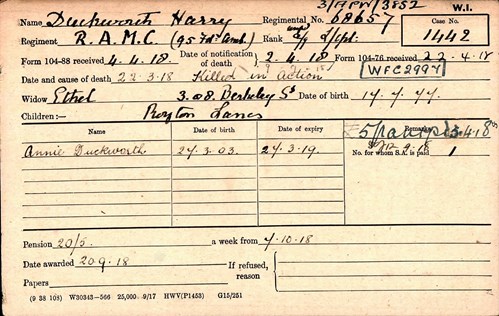 3/AFW/3552
W.I.
Name Duckworth Harry Regimental No. 68657 Case No.
Regiment R.A.M.C. (95 Fd Amb) Rank 1442
Form 104-88 received 4.4.18. Date of notification of death 2.4.18 Form 104-76 received 22.4.18
Date and cause of death 22.3.18 Killed in action WFC2997
Widow Ethel 308. Berkeley St Date of birth 17.7.77.
Children:— Royton Lancs
Name Date of birth Date of expiry Remarks
Annie Duckworth 27.3.03. 27.3.19. No. for whom S.A. is paid 1
Pension 20/5. a week from 7.10.18
Date awarded 20.9.18 If refused, reason
Papers
(9 38 108) W30343—566 25,000 9/17 HWV(P1453) G15/251